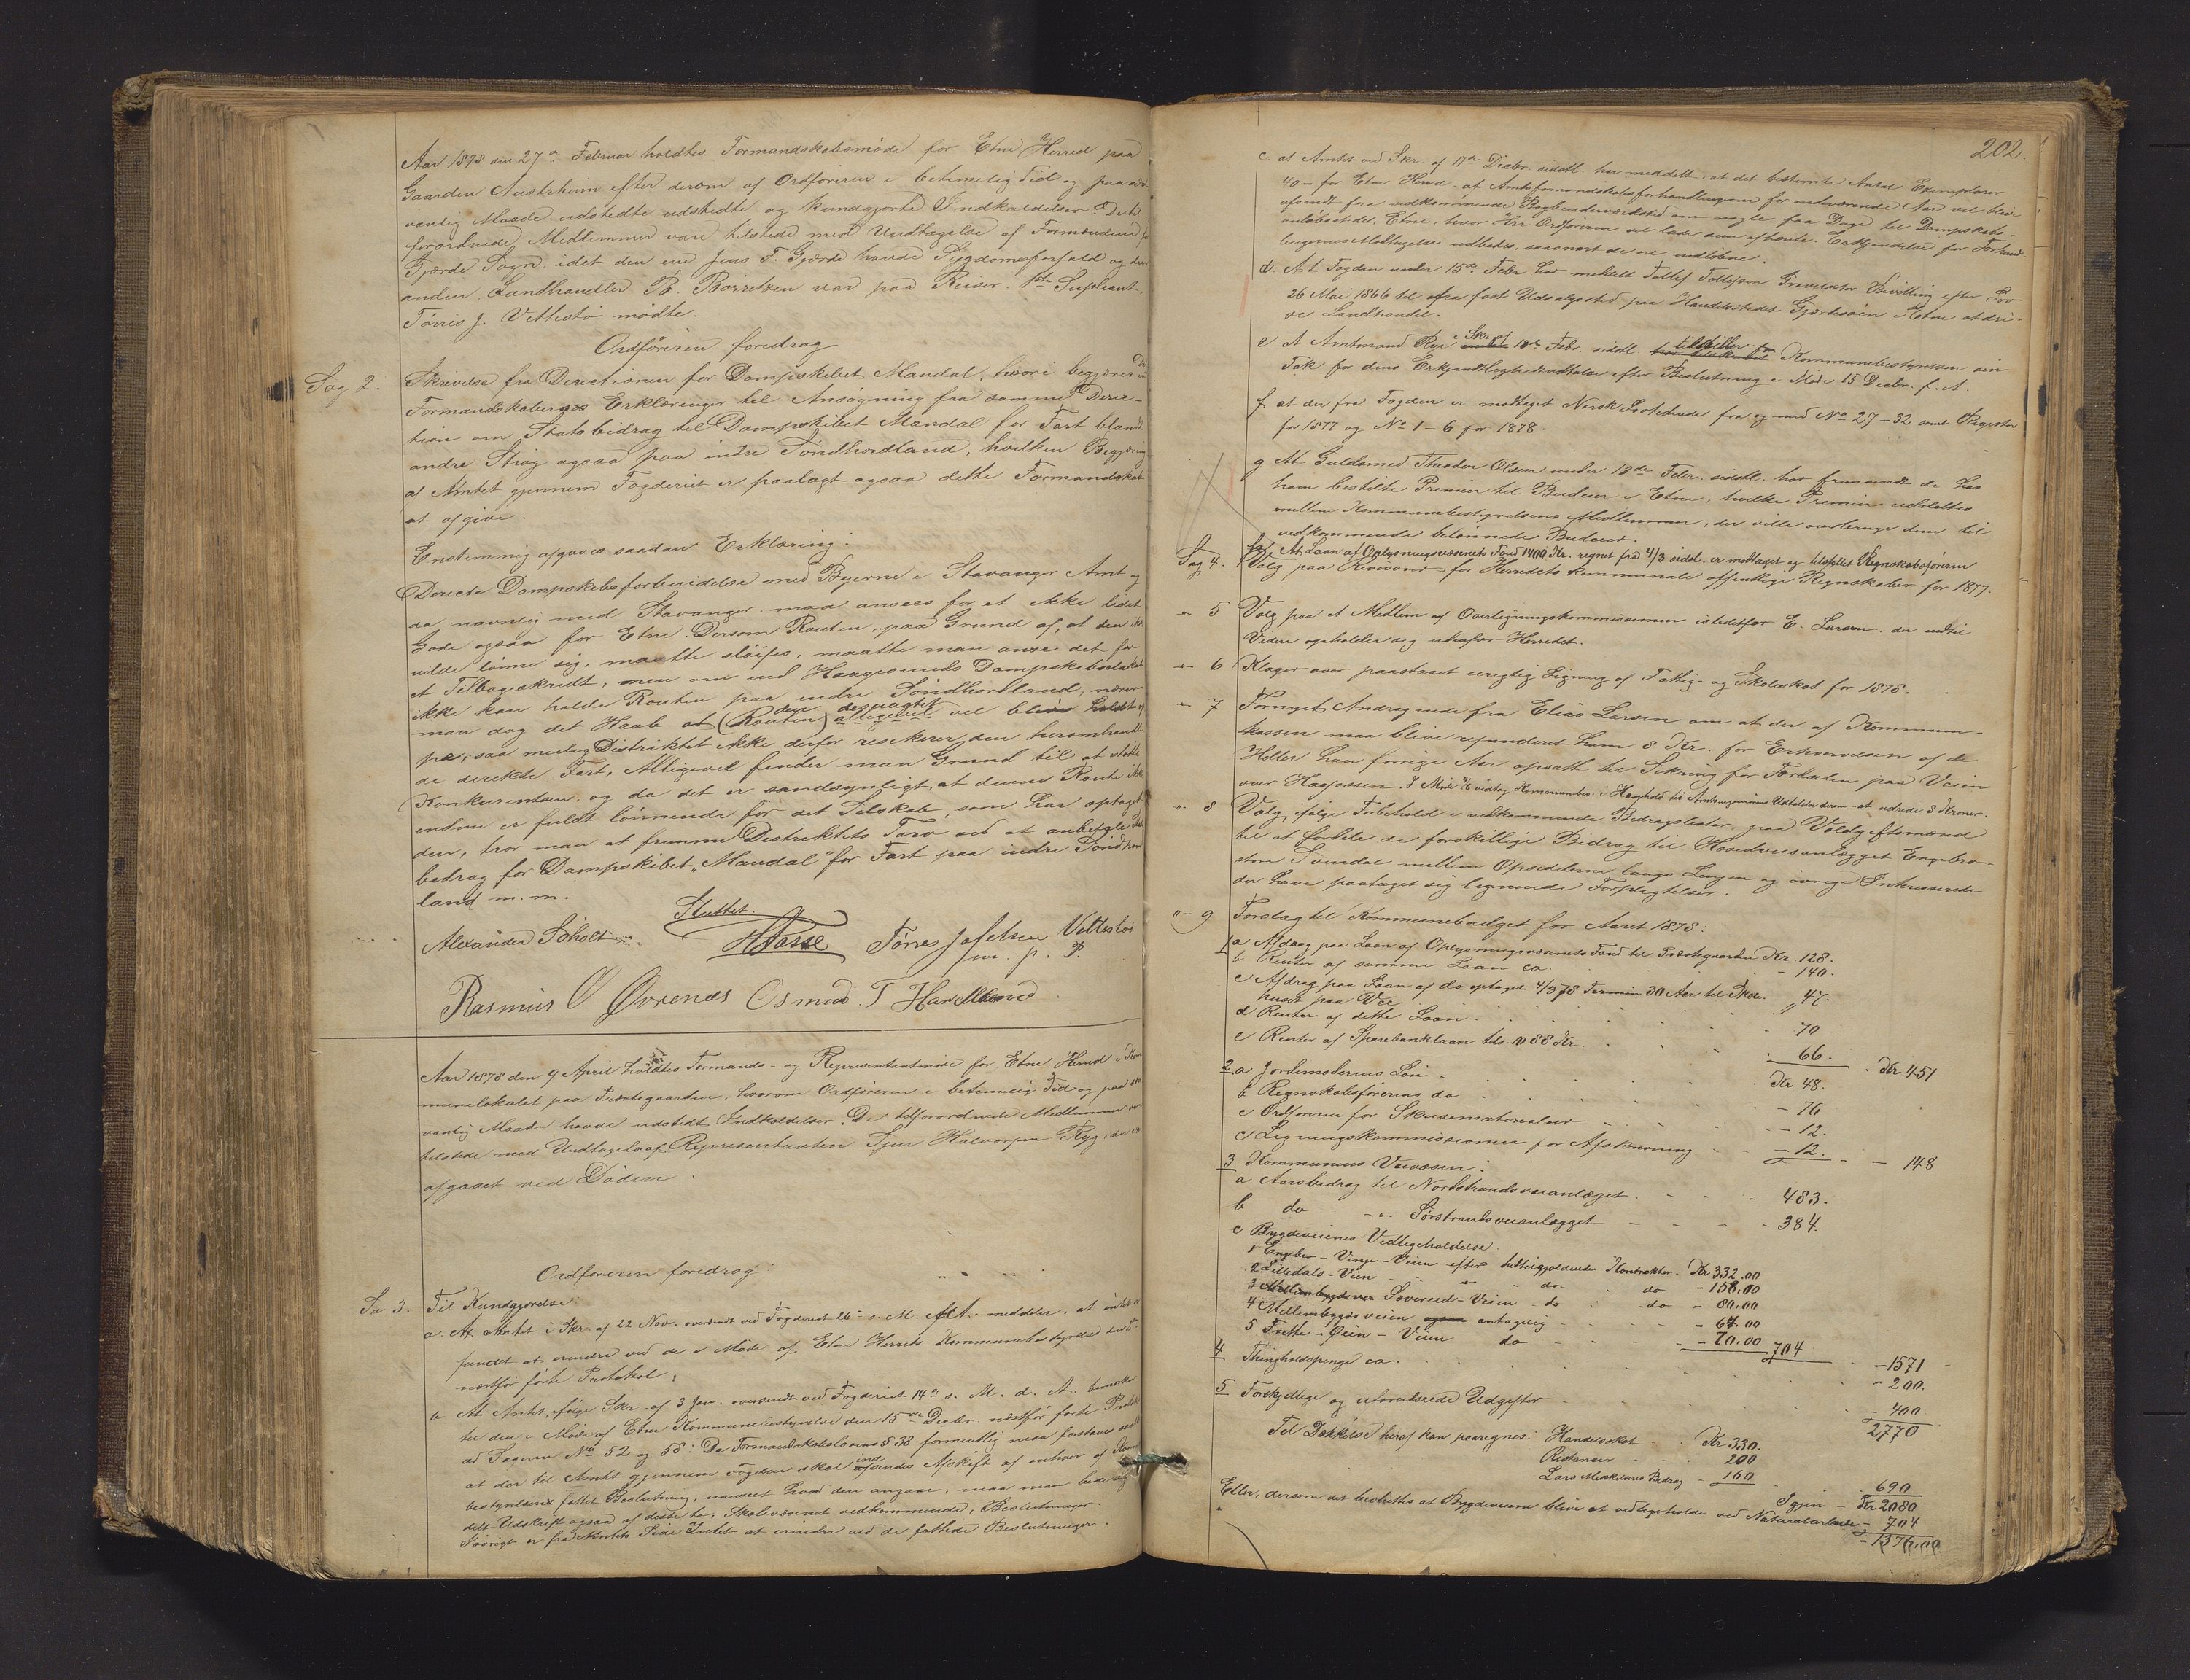 Aar 1878 den 27de Februar holdtes Formandskabsmøde for Etne Herred paa
Gaarden Austrheim efter derom af Ordføreren i betimelig Tid og paa
vanlig Maade udstedte udstedte og kundgjorte Indkaldelser. De til-
forordnede Medlemmer vare tilstede med Undtagelse af Formændene
Gjerde Sogn, idet den ene Jens T. Gjerde havde Sygdomsforfald og den
anden Landhandler B. Børretzen var paa Reiser. 1ste Supleant
Tørris J. Vettestø mødte.
Ordføreren foredrog
Sag 2.
Skrivelse fra Directionen for Dampskibet Mandal, hvori begjæres
Formandskabernes Erklæringer til Ansøgning fra samme Direc-
tion om Statsbidrag til Dampskibet Mandal for Fart blandt
andre Strøg ogsaa paa indre Søndhordland, hvilken Begjæring
af Amtet gjennem Fogderiet er paalagt ogsaa dette Formandskab
at afgive.
Enstemmig afgaves saadan Erklæring:
Directe Dampskibsforbindelse med Byerne i Stavanger Amt og
da navnlig med Stavanger maa ansees for et ikke lidet
Gode ogsaa for Etne. Dersom Routen, paa Grund af, at den ikke
vilde lønne sig, maatte sløifes, maatte man anse det for
et Tilbageskridt, men om end Haugesunds Dampskibsselskab
ikke kan holde Routen paa indre Søndhordland, nærer
man dog det Haab at (Routen) den desuagtet alligevel vil blive holdt
paa, saa meelig Distriktet ikke derfor reskerer den heromhandle-
de direkte Fart. Alligevel finder man Grund til at støtte
Konkurentsen, og da det er sandsynligt, at denne Route ikke
endnu er fuldt lønnende for det Selskab, som har optaget
den, tror man at fremme Distriktets Tarv ved at anbefale
bidrag for Dampskibet "Mandal" for Fart paa indre Søndhord-
land m. m.
Sluttet.
Alexander Scholt HFasse Tørres Jofelsen Vettestø
m. p. P.
Rasmus O Øvrenæs Osmund T Haveland
Aar 1878 den 9 April holdtes Formands- og Representantmøde for Etne Herred i Kom-
munelokalet paa Præstegaarden, hvorom Ordføreren i betimelig Tid og paa
vanlig Maade havde udstedt Indkaldelser. De tilforordnede Medlemmer
tilstede med Undtagelse af Representanten Sjur Halvorsen Ryg, der er
afgaaet ved Døden.
Ordføreren foredrog
Sa 3. Til Kundgjørelse:
a. At Amtet i Skr. af 22 Nov. oversendt ved Fogderiet 26de s. M. f.A. meddeler, at intet er
fundet at erindre ved de i Møde af Etne Herreds Kommunebestyrelse den
næstfør førte Protokol,
b At Amtet ifølge Skr. af 3 Jan. oversendt ved Fogderiet 14de s. M. d. A. bemærker
til den i Møde af Etne Kommunebestyrelse den 15de Decbr. næstfør førte Protokol
ad Sagerne No 52 og 58: Da Formandskabslovens § 38 formentlig maa forstaaes saa
at der til Amtet gjennem Fogden skal indsendes Afskrift af enhver af Kommune-
bestyrelsen fattet Beslutning, uanseet hvad den angaar, maa man bede sig
delt Udskrift ogsaa af disse to, Skolevæsenet vedkommende, Beslutninger.
Iøvrigt er fra Amtets Side Intet at erindre ved de fattede Beslutninger.
202.
c. at Amtet ved Skr. af 17de Decbr. sidstl. har meddelt, at det bestemte Antal Exemplarer
40 - for Etne Herred af Amtsformandskabsforhandlingerne for indeværende Aar vil blive
afsendt fra vedkommende Bogbinderværksted om nogle faa Dage til Dampskibs-
anløbsstedet Etne, hvor Hr Ordføreren vil lade dem afhente. Erkjendelse for Forhand-
lingernes Modtagelse udbedes, saasnart de ere indløbne.
d. At Fogden under 15de Febr har meddelt Tollef Tollefsen Gravelsæter Bevilling efter Lov
26 Mai 1866 til fra fast Udsalgssted paa Handelsstedet Gjerksøen i Etne at dri-
ve Landhandel.
e at Amtmand Rye i Skr. af 18de Febr. sidstl. tilstiller Kommunebestyrelsen sin
Tak for dens Erkjendtlighedsudtalelse efter Beslutning i Møde 15 Decbr. f. A.
f at der fra Fogden er modtaget Norsk Lovtidende fra og med No 27-32 samt Register
for 1877 og No 1-6 for 1878.
g At Guldsmed Theodor Olsen under 13de Febr. sidstl. har fremsendt de hos
ham bestilte Premier til Budeier i Etne, hvilke Premier uddeltes
mellem Kommunebestyrelsens Medlemmer, der ville overbringe dem til
vedkommende belønnede Budeier.
h At Laan af Oplysningsvæsenets Fond 1400 Kr. regnet fra 4/3 sidstl. er modtaget og tilstillet Regnskabsføreren
Sag 4. Valg paa Revisorer for Herredets kommunale offentlige Regnskaber for 1877.
"- 5 Valg paa et Medlem af Overligningskommissionen istedetfor E. Larsen, der indtil
Videre opholder sig udenfor Herredet.
"- 6 Klager over paastaaet urigtig Ligning af Fattig- og Skoleskat for 1878.
"- 7 Fornyet Andragende fra Elias Larsen om at der af Kommune-
kassen maa blive refunderet ham 8 Kr. for Erhvervelsen af de
Heller han forrige Aar opsatte til Sikring for Færdselen paa Veien
over Hagfossen. I Møde vedtog Kommunebes. i Henhold til Amtsingeniørens Udtalelse derom at udrede 8 Kroner.
"- 8 Valg, ifølge Forbehold i vedkommende Bidragslister, paa Voldgiftsmænd
til at fordele de forskillige Bidrag til Hovedveianlægget Engebro-
store Svendal mellem Opsidderne langs Linjen og øvrige Interesserede
der have paataget sig lignende Forpligtelser.
"- 9 Forslag til Kommunebudget for Aaret 1878:
1 a Afdrag paa Laan af Oplysningsvæsenets Fond til Præstegaarden Kr. 128.
b Renter af samme Laan ca. - 140.
c Afdrag paa Laan af do optaget 4/3 78 Termin 30 Aar til Skole-
huset paa Vee " 47.
d Renter af dette Laan 70
e Renter af Sparebanklaan tils. 1088 Kr. 66. Kr 451
2 a Jordemoderens Løn Kr 48.
b Regnskabsførerens do - 76
c Ordføreren for Skrivematerialier - 12.
d Ligningskommissionen for Afskrivning - 12. - 148
3 Kommunens Veivæsen:
a Aarsbidrag til Nordstrandsveianlægget 483.
b do -"- Sørstrandsveianlægget - 384.
c Bygdeveienes Vedligeholdelse.
1 Engebro-Vinje-Veien efter hidtilgjældende Kontrakter Kr 332.00
2 Litledals-Veien -"- do do - 158.00
3 Søvereid-Veien do do - 80.00
4 Mellembygdsveien antagelig - 64.00
5 Frette-Øien-Veien do - 70.00 704 - 1571
4 Thingholdspenge ca. - 200.
5 Forskjellige og uforudseede Udgifter - 400
2770
Til Dækkelse heraf kan paaregnes: Handelsskat Kr 330.
Restancer 200
Lars Miskelins Bidrag - 160 690
Igjen - Kr 2080
Eller, dersom det besluttes at Bygdeveiene blive at vedligeholde ved Naturalarbeide - 704
- 1376.00